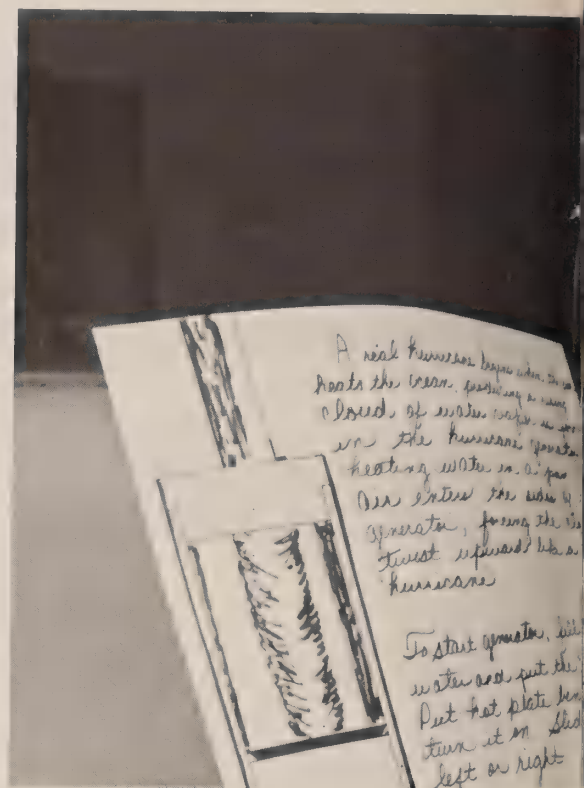 A real hurricane begins when the
heats the ocean, producing a rising
cloud of water vapor
in the hurricane generator
heating water in a pan
Air enters the sides of
generator, forcing the
twist upward like a
hurricane
To start generator,
water and put the
Put hot plate
turn it on Slid
left or right